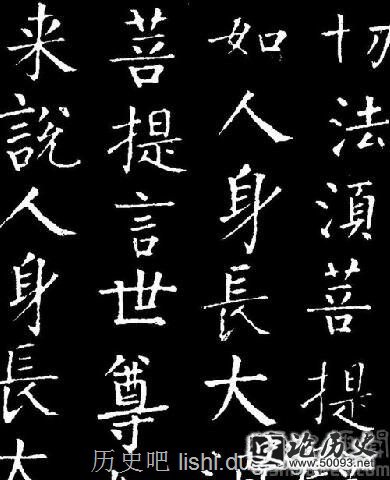 切法須菩提
如人身長大
菩提言世尊
来說人身長大
历史吧 lishi.du
论历史
www.50093.net